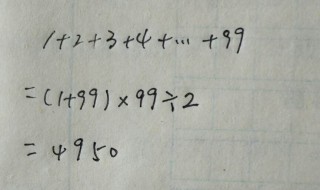 1+2+3+4+…+99
=(1+99)×99÷2
=4950